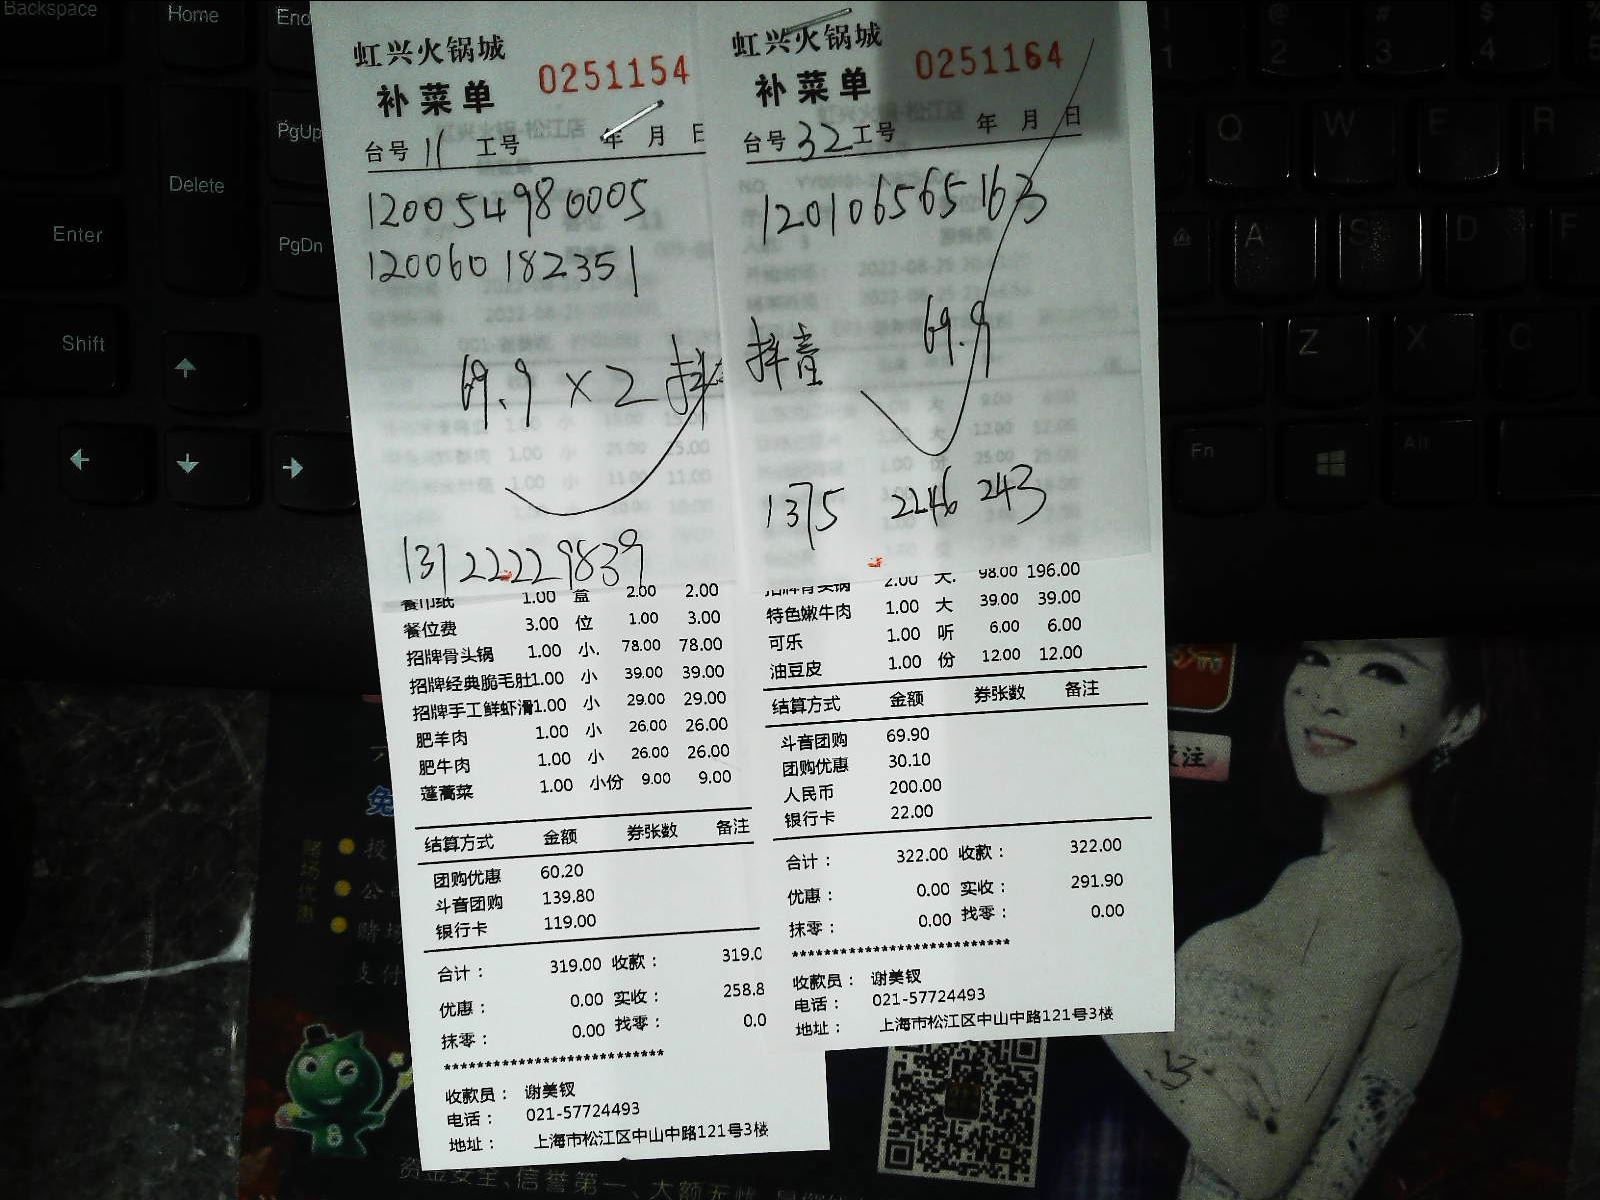 虹兴火锅城
补菜单
0251154
台号 11 工号 年 月 日
120054980005
120060182351
69.9 × 2 抖
13122229839
餐巾纸 1.00 盒 2.00 2.00
餐位费 3.00 位 1.00 3.00
招牌骨头锅 1.00 小. 78.00 78.00
招牌经典脆毛肚1.00 小 39.00 39.00
招牌手工鲜虾滑1.00 小 29.00 29.00
肥羊肉 1.00 小 26.00 26.00
肥牛肉 1.00 小 26.00 26.00
蓬蒿菜 1.00 小份 9.00 9.00
结算方式 金额 券张数 备注
团购优惠 60.20
斗音团购 139.80
银行卡 119.00
合计： 319.00 收款： 319.0
优惠： 0.00 实收： 258.8
抹零： 0.00 找零： 0.0
***************************
收款员： 谢美钗
电话： 021-57724493
地址： 上海市松江区中山中路121号3楼
虹兴火锅城
补菜单
0251164
台号 32 工号 年 月 日
120106565163
抖音 69.9
1375 2246 243
招牌骨头锅 2.00 大. 98.00 196.00
特色嫩牛肉 1.00 大 39.00 39.00
可乐 1.00 听 6.00 6.00
油豆皮 1.00 份 12.00 12.00
结算方式 金额 券张数 备注
斗音团购 69.90
团购优惠 30.10
人民币 200.00
银行卡 22.00
合计： 322.00 收款： 322.00
优惠： 0.00 实收： 291.90
抹零： 0.00 找零： 0.00
***************************
收款员： 谢美钗
电话： 021-57724493
地址： 上海市松江区中山中路121号3楼
Backspace
Home
End
PgUp
Delete
Enter
PgDn
Shift
Q W E R
A S D F
Z X C
Fn
Alt
资金安全、信誉第一、大额无忧